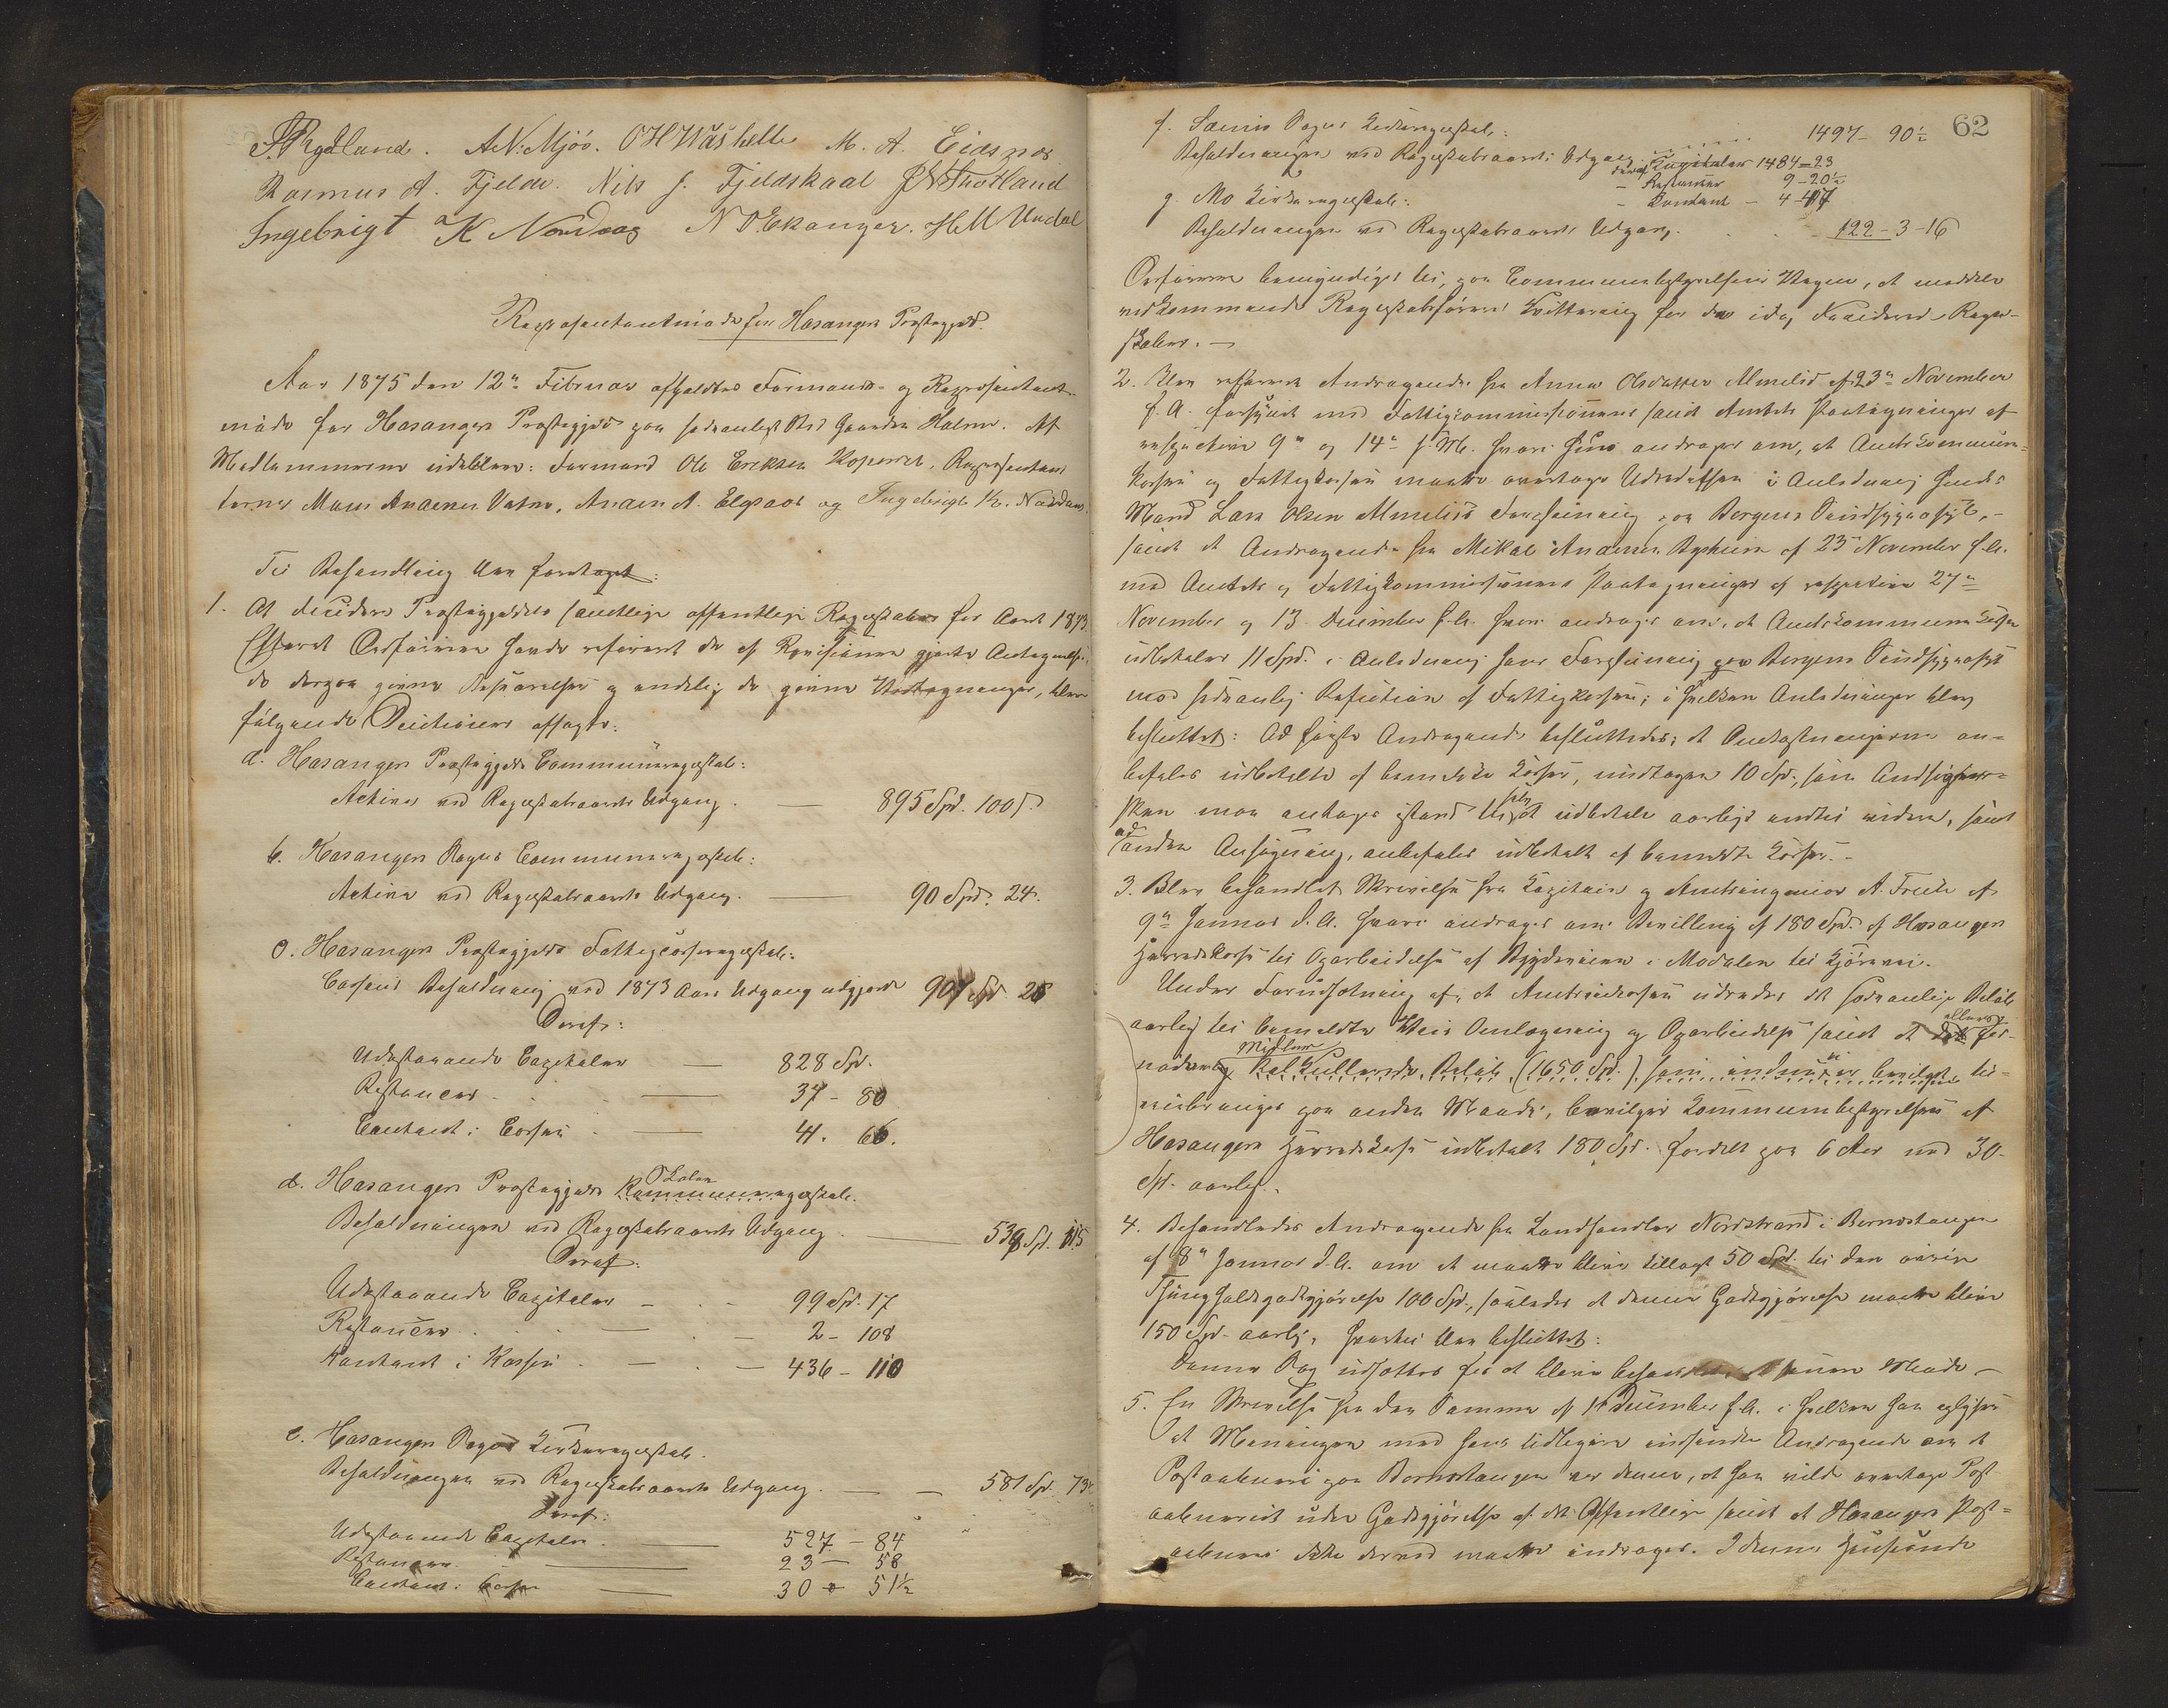 Rydland. A.N. Mjös. O H Washelle M. A. Eidsnes
Rasmus A. Fjelde. Nils J. Fjeldskaal
Ingebrigt K Nordaas N O Ekanger. H M Undal
Repræsentantmöde for Hosanger Præstegjeld.
Aar 1875 den 12te Februar afholdtes Formands- og Repræsentant-
möde for Hosangers Præstegjeld paa sædvanligt Sted Gaarden Holme. Af
Medlemmerne udebleve: Formand Ole Eriksen Kopereit, Repræsentan-
terne Mons Andersen Vatne, Anders A. Elsaas og Ingebrigt K. Nordaas.
Til Behandling blev foretaget:
1. At decidere Præstegjeldets samtlige offentlige Regnskaber for Aaret 1873
Efterat Ordföreren havde refereret de af Revisionen gjorte Antegnelser,
de derpaa givne Besvarelser og endelig de givne Paategninger, blev
fölgende Decisioner afsagte:
a. Hosangers Præstegjelds Communeregnskab:
Activa ved Regnskabsaarets Udgang. — 895 Spd. 100 s.
b. Hosangers Sogns Communeregnskab:
Activa ved Regnskabsaarets Udgang. — 90 Spd. 24.
c. Hosangers Præstegjelds Fattigcasseregnskab:
Cassens Beholdning ved 1873 Aars Udgang udgjorde
Deraf:
Udestaaende Capitaler — 828 Spd.
Restancer — 37 - 80
Contant i Cassen — 41. 66.
d. Hosangers Præstegjelds Skole
Kommuneregnskab.
Beholdningen ved Regnskabsaarets Udgang — 538 Spd. 115
Deraf:
Udestaaende Capitaler — 99 Spd. 17
Restancer. — 2 - 108
Kontant i Kassen — 436 - 110
e. Hosangers Sogns Kirkeregnskab.
Beholdningen ved Regnskabsaarets Udgang. — 581 Spd. 73½
Deraf:
Udestaaende Capitaler. — 527 - 84
Restancer. — 23 - 58
Contant i Cassen — 30 - 51½
62
f. Sæims Sogns Kirkeregnskab:
Beholdningen ved Regnskabsaarets Udgang 1497 - 90½
deraf Capitaler 1484 - 23
- Restancer 9 - 20½
- Kontant - 4 - 47
g. Mo Kirkeregnskab:
Beholdningen ved Regnskabsaarets Udgang. 122 - 3 - 16
Ordföreren bemyndiges til, paa Communebestyrelsens Vegne, at meddele
vedkommende Regnskabsförere Qvittering for de idag deciderede Regn-
skaber. —
2. Blev refereret Andragende fra Anna Olsdatter Almelid af 23de November
f.A. forsynet med Fattigcommissionens samt Amtets Paategninger af
respective 9de og 14de f.M. hvori hun andrager om, at Amtskommune-
kassen og Fattigkassen maatte overtage Udredelsen i Anledning hendes
Mand Lars Olsen Almelids Forpleining paa Bergens Sindssygeasyl, -
samt et Andragende fra Mikal Andersen af 23de November f.A.
med Amtets og Fattigkommissionens Paategninger af respective 27de
November og 13 December f.A. hvori andrages om, at Amtskommunekassen
udbetaler 11 Spd. i Anledning hans Forpleining paa Bergens Sindssygeasyl
mod sædvanlig Refusion af Fattigkassen; i hvilken Anledninger blev
besluttet: Ad förste Andragende besluttedes; at Omkostningerne an-
befales udbetalte af bemeldte Kasser, undtagen 10 Spd., som Andsögeren-
sken maa antages istand til selv at udbetale aarligt indtil videre, samt
ad anden Ansögning, anbefales udbetalt af bemeldte Kasser. -
3. Blev behandlet Skrivelse fra Kaptein og Amtsingeniör A. Friele af
9de Januar d.A. hvori andrages om Bevilling af 180 Spd. af Hosangers
Herredskasse til Oparbeidelse af Bygdeveien i Modalen til Kjörevei.
Under Forudsætning af, at Amtsveikassen udreder det sædvanlige Belöb
aarlig til bemeldte Veis Omlægning og Oparbeidelse samt at det övrige for-
nödne Midler kalkullerede Belöb (1650 Spd.) som endnu ei er bevilget til-
veiebringes paa anden Maade, bevilger Kommunebestyrelsen af
Hosangers Herredskasse udbetalt 180 Spd. fordelt paa 6 Aar med 30
Spd. aarlig.
4. Behandledes Andragende fra Landhandler Nordstrand i Bernestangen
af 8de Januar d.A. om at maatte blive tillagt 50 Spd. til den
Thinghaldsgodtgjörelse 100 Spd., saaledes at denne Godtgjörelse maatte blive
150 Spd. aarlig, hvortil blev besluttet:
Denne Sag udsættes for at blive behandlet i et senere Möde -
5. En Skrivelse fra den Samme af December f.A. i hvilken han oplyser
at Meningen med hans tidligere indsendte Andragende om et
Postaabneri paa Bernestangen var denne, at han vilde overtage Post-
aabneriet uden Godtgjörelse af det Offentlige samt at Hosangers Post-
aabneri ikke derved maatte inddrages. I denne Henseende